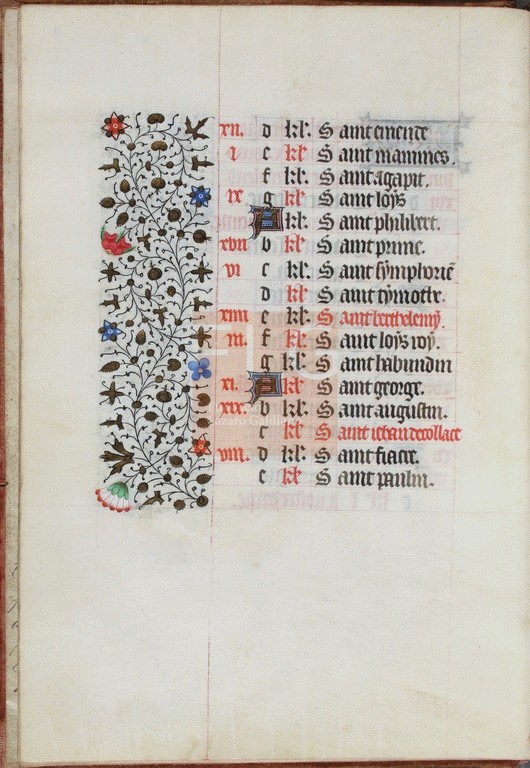 xii. d kl'. Saint emende
i e kl' Saint mammes.
f kl'. Saint agapit.
ix g kl'. Saint loys
A kl'. Saint philibert.
xvii b kl'. Saint prime.
vi c kl'. Saint symphoriē
d kl'. Saint tymothe.
xiiii e kl'. Saint berthelemy.
iii. f kl'. Saint loys roy.
g kl'. Saint habundin
xi. A kl'. Saint george.
xix. b kl'. Saint augustin.
c kl' Saint iehan decollace
viii. d kl'. Saint fiacre.
e kl' Saint paulin.